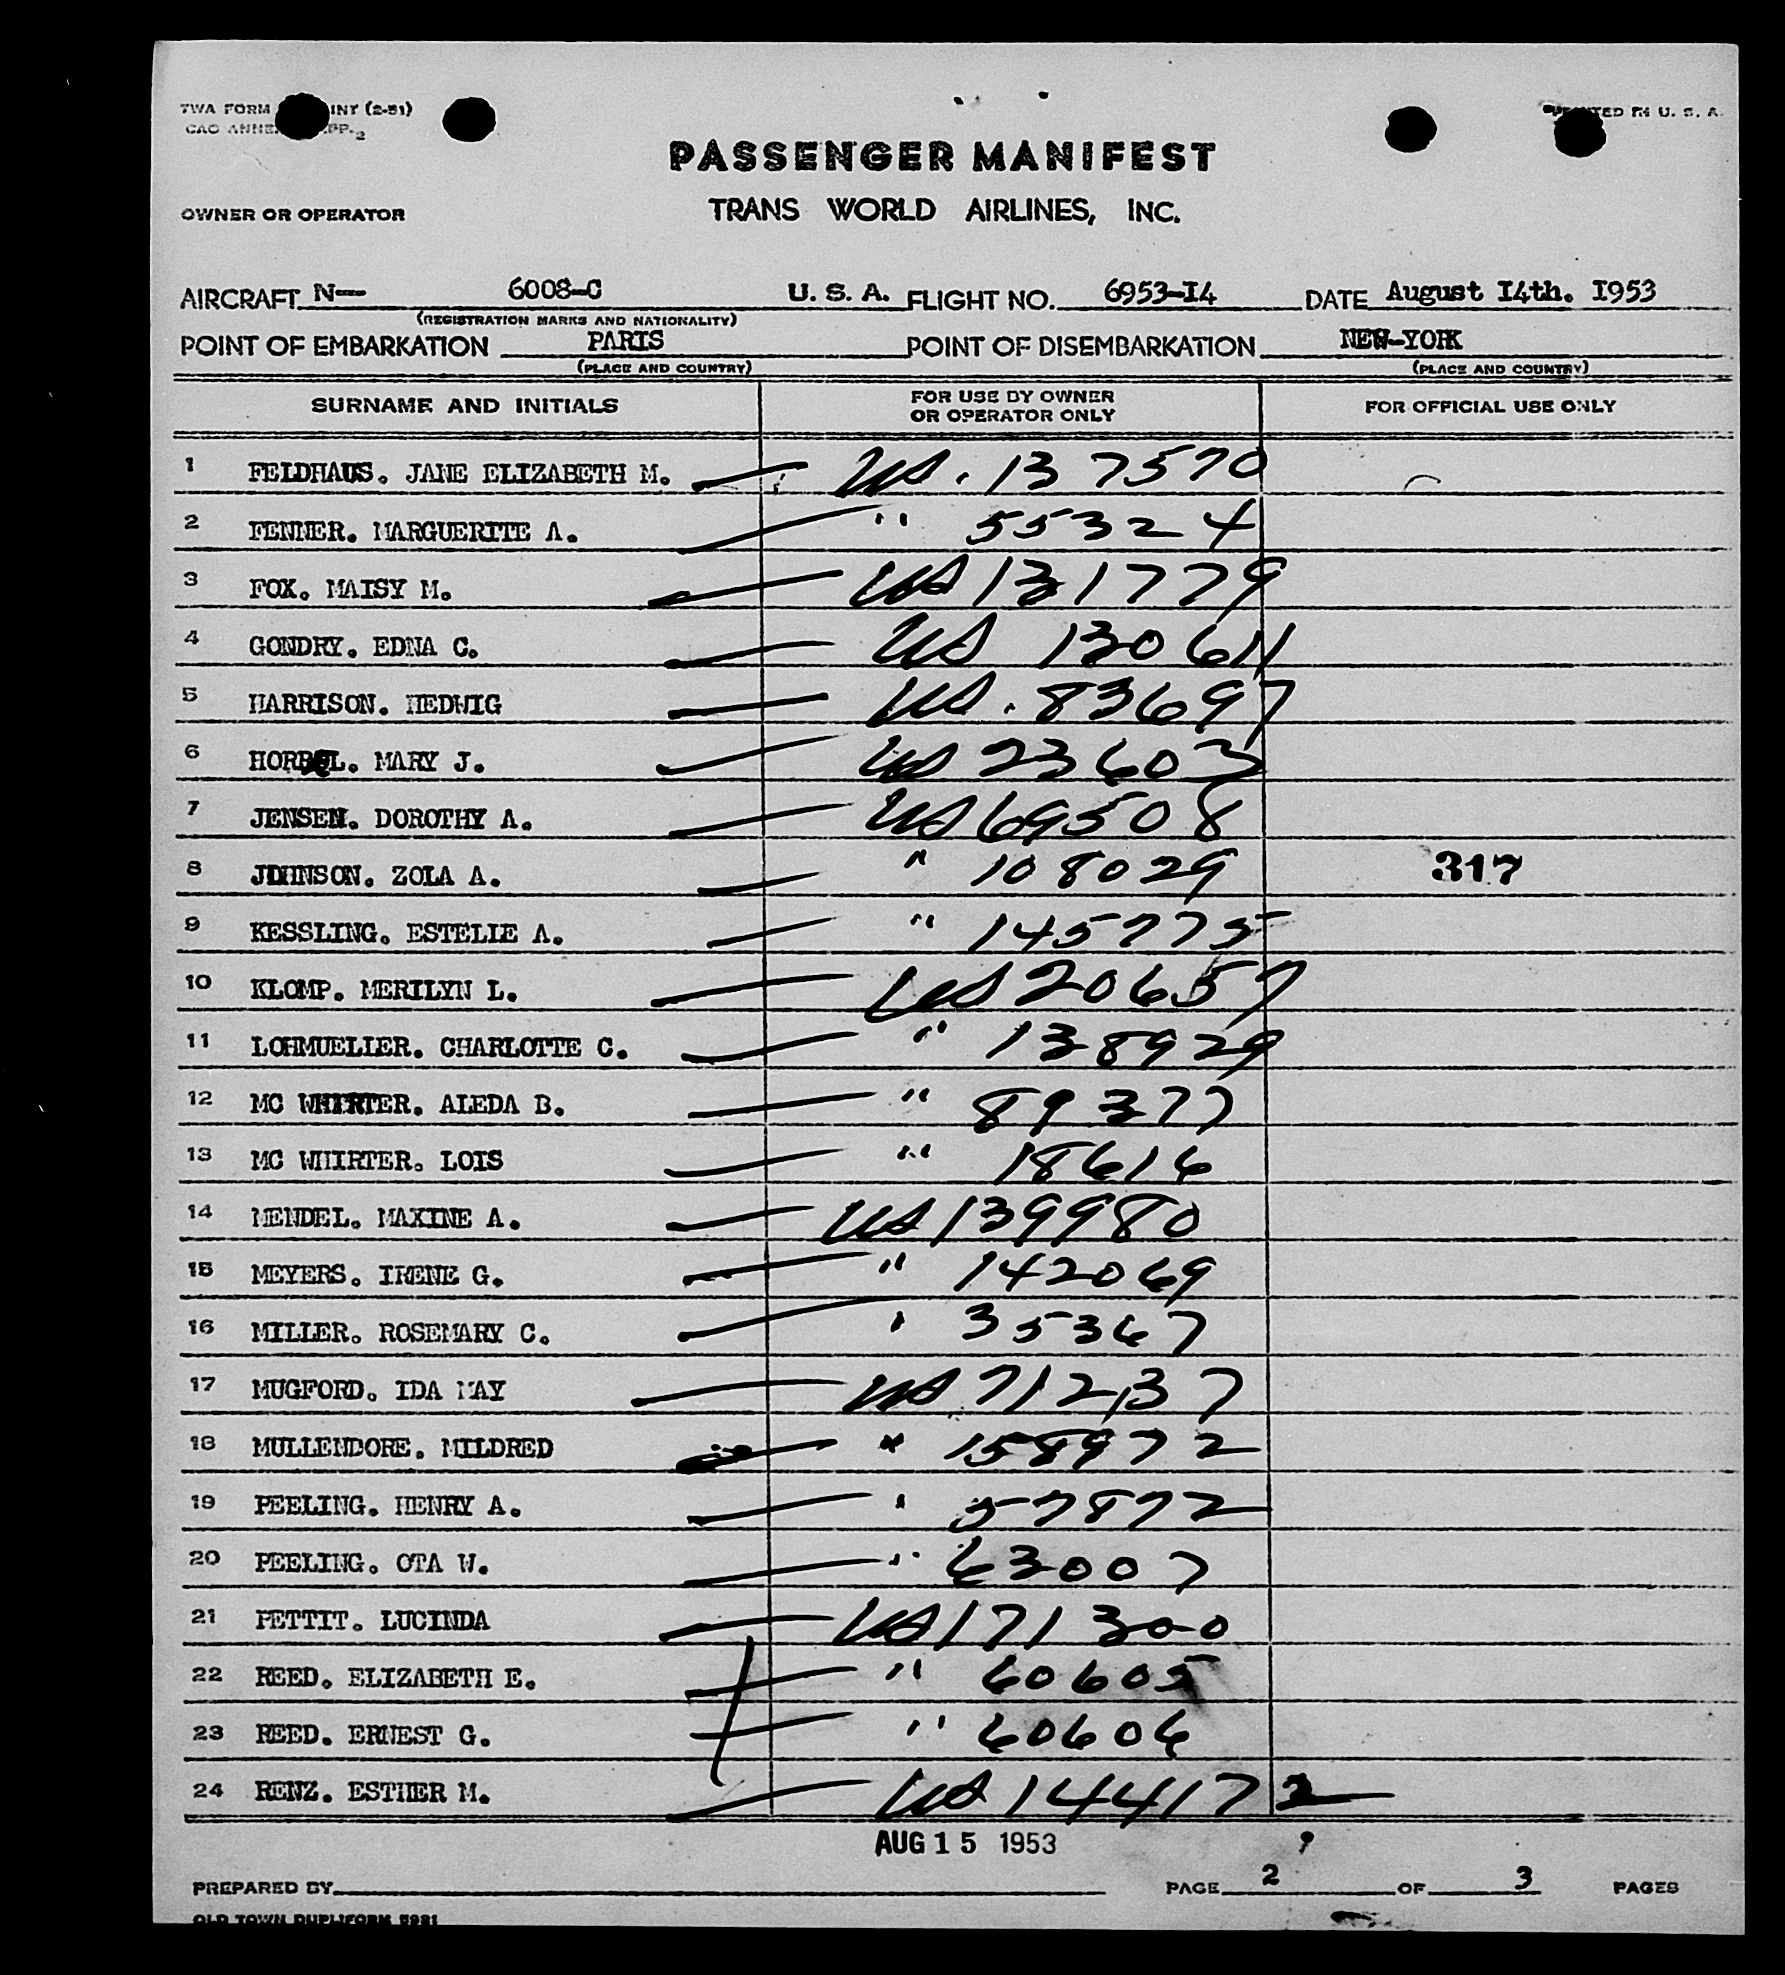 TWA FORM INT (2-51)
PRINTED IN U. S. A.
PASSENGER MANIFEST
OWNER OR OPERATOR TRANS WORLD AIRLINES, INC.
AIRCRAFT N-- 6008-C U. S. A. FLIGHT NO. 6953-I4 DATE August I4th. I953
(REGISTRATION MARKS AND NATIONALITY)
POINT OF EMBARKATION PARIS POINT OF DISEMBARKATION NEW-YORK
(PLACE AND COUNTRY) (PLACE AND COUNTRY)
SURNAME AND INITIALS FOR USE BY OWNER OR OPERATOR ONLY FOR OFFICIAL USE ONLY
1 FELDHAUS. JANE ELIZABETH M. US. 137570
2 FENNER. MARGUERITE A. " 55324
3 FOX. MAISY M. US 131779
4 GONDRY. EDNA C. US 130611
5 HARRISON. HEDWIG US. 83697
6 HORBEL. MARY J. US 23603
7 JENSEN. DOROTHY A. US 69508
8 JOHNSON. ZOLA A. " 108029 317
9 KESSLING. ESTELLE A. " 145775
10 KLOMP. MERILYN L. US 20657
11 LOHMUELLER. CHARLOTTE C. " 138929
12 MC WHIRTER. ALEDA B. " 89377
13 MC WHIRTER. LOIS " 18616
14 MENDEL. MAXINE A. US 139980
15 MEYERS. IRENE G. " 142069
16 MILLER. ROSEMARY C. ' 35367
17 MUGFORD. IDA MAY US 71237
18 MULLENDORE. MILDRED " 158972
19 PEELING. HENRY A. " 57872
20 PEELING. OTA W. " 63007
21 PETTIT. LUCINDA US 171300
22 REED. ELIZABETH E. " 60605
23 REED. ERNEST G. " 60606
24 RENZ. ESTHER M. US 144172
AUG 15 1953
PREPARED BY PAGE 2 OF 3 PAGES
OLD TOWN DUPLIFORM 5981